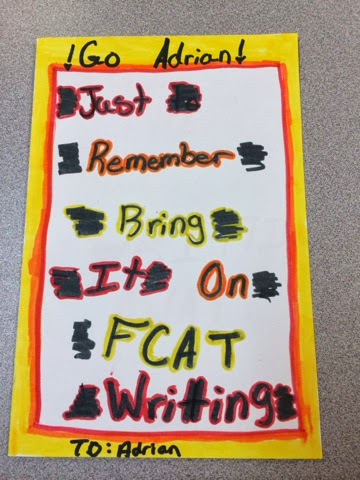 !Go Adrian!
Just
Remember
Bring
It On
FCAT
Writting
TO: Adrian